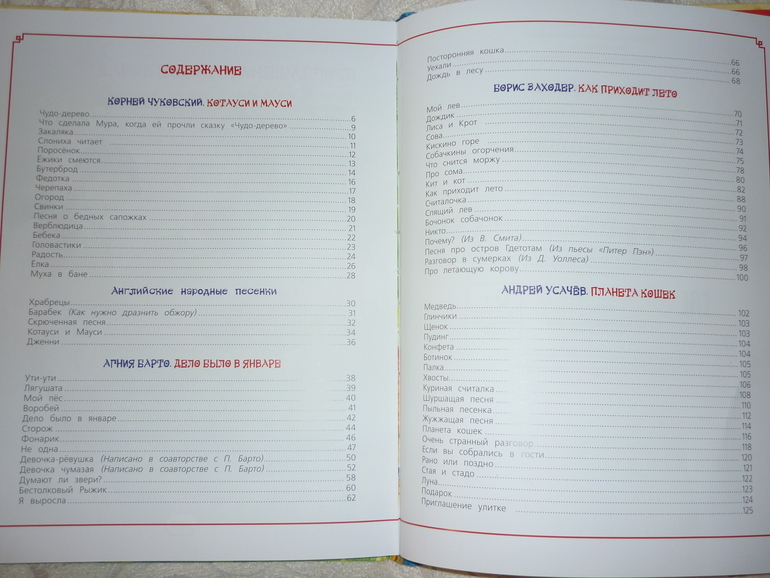 СОДЕРЖАНИЕ
КОРНЕЙ ЧУКОВСКИЙ. КОТАУСИ И МАУСИ
Чудо-дерево 6
Что сделала Мура, когда ей прочли сказку «Чудо-дерево» 9
Закаляка 10
Слониха читает 11
Поросёнок 12
Ёжики смеются 13
Бутерброд 14
Федотка 16
Черепаха 17
Огород 18
Свинки 19
Песня о бедных сапожках 20
Верблюдица 21
Бебека 22
Головастики 23
Радость 24
Ёлка 26
Муха в бане 28
Английские народные песенки
Храбрецы 30
Барабек (Как нужно дразнить обжору) 31
Скрюченная песня 32
Котауси и Мауси 34
Дженни 36
АГНИЯ БАРТО. ДЕЛО БЫЛО В ЯНВАРЕ
Ути-ути 38
Лягушата 39
Мой пёс 40
Воробей 41
Дело было в январе 42
Сторож 44
Фонарик 46
Не одна 47
Девочка-рёвушка (Написано в соавторстве с П. Барто) 50
Девочка чумазая (Написано в соавторстве с П. Барто) 52
Думают ли звери? 58
Бестолковый Рыжик 60
Я выросла 62
Посторонняя кошка 66
Уехали 66
Дождь в лесу 68
БОРИС ЗАХОДЕР. КАК ПРИХОДИТ ЛЕТО
Мой лев 70
Дождик 71
Лиса и Крот 72
Сова 73
Кискино горе 74
Собачкины огорчения 75
Что снится моржу 78
Про сома 80
Кит и кот 82
Как приходит лето 88
Считалочка 90
Спящий лев 91
Бочонок собачонок 92
Никто 94
Почему? (Из В. Смита) 96
Песня про остров Гдетотам (Из пьесы «Питер Пэн») 97
Разговор в сумерках (Из Д. Уоллеса) 98
Про летающую корову 100
АНДРЕЙ УСАЧЁВ. ПЛАНЕТА КОШЕК
Медведь 102
Глинчики 103
Щенок 103
Пудинг 104
Конфета 104
Ботинок 105
Палка 105
Хвосты 106
Куриная считалка 108
Шуршащая песня 110
Пыльная песенка 112
Жужжащая песня 114
Планета кошек 116
Очень странный разговор 118
Если вы собрались в гости 120
Рано или поздно 121
Стая и стадо 122
Луна 123
Подарок 124
Приглашение улитке 125